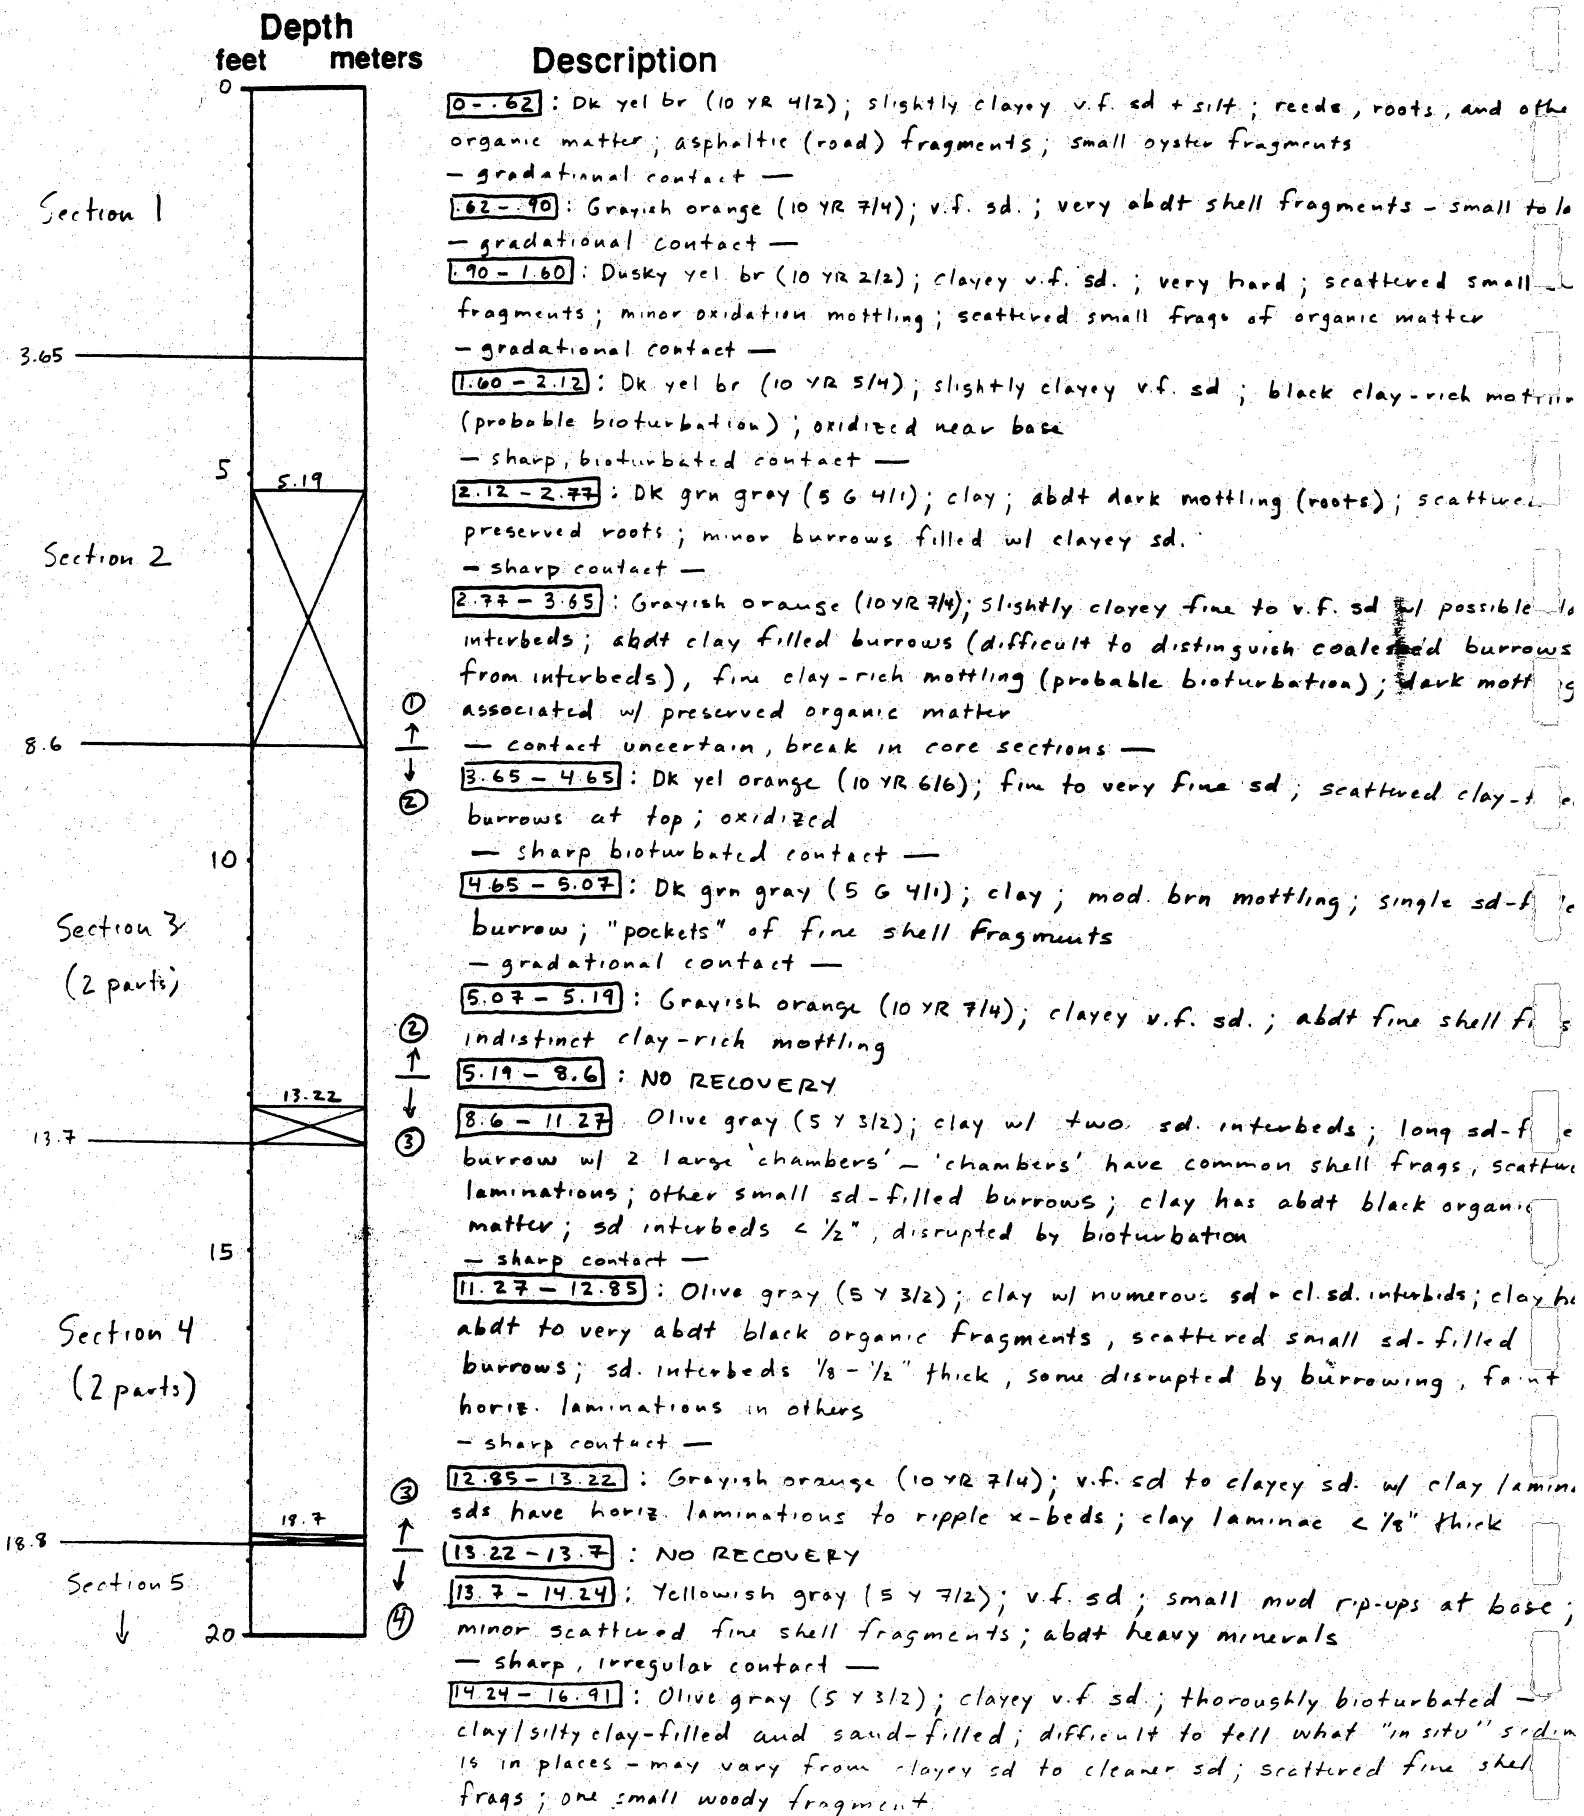 Depth
feet meters Description
0
0 - .62 : Dk yel br (10 YR 4/2); slightly clayey v.f. sd + silt ; reeds, roots, and othe
organic matter; asphaltic (road) fragments; small oyster fragments
— gradational contact —
Section 1
.62 - .90 : Grayish orange (10 YR 7/4); v.f. sd. ; very abdt shell fragments - small to la
— gradational contact —
.90 - 1.60 : Dusky yel. br (10 YR 2/2); clayey v.f. sd. ; very hard ; scattered small
fragments; minor oxidation mottling; scattered small frags of organic matter
— gradational contact —
3.65
1.60 - 2.12 : Dk yel br (10 YR 5/4); slightly clayey v.f. sd ; black clay-rich
(probable bioturbation) ; oxidized near base
— sharp, bioturbated contact —
5
5.19
2.12 - 2.77 : Dk grn gray (5 G 4/1); clay; abdt dark mottling (roots);
preserved roots ; minor burrows filled w/ clayey sd.
Section 2
— sharp contact —
2.77 - 3.65 : Grayish orange (10 YR 7/4); slightly clayey fine to v.f. sd w/ possible
interbeds; abdt clay filled burrows (difficult to distinguish coalesced burrows
from interbeds), fine clay-rich mottling (probable bioturbation); dark
① associated w/ preserved organic matter
↑
8.6
— contact uncertain, break in core sections —
↓
3.65 - 4.65 : Dk yel orange (10 YR 6/6); fine to very fine sd ; scattered
② burrows at top ; oxidized
— sharp bioturbated contact —
10
4.65 - 5.07 : Dk grn gray (5 G 4/1); clay ; mod. brn mottling; single
Section 3
burrow ; "pockets" of fine shell fragments
— gradational contact —
(2 parts)
5.07 - 5.19 : Grayish orange (10 YR 7/4); clayey v.f. sd. ; abdt fine shell
② indistinct clay-rich mottling
↑
5.19 - 8.6 : NO RECOVERY
13.22
↓
8.6 - 11.27 Olive gray (5 Y 3/2); clay w/ two sd. interbeds; long
13.7
③
burrow w/ 2 large 'chambers' - 'chambers' have common shell frags,
laminations; other small sd-filled burrows; clay has abdt black organic
matter; sd interbeds < 1/2", disrupted by bioturbation
15
— sharp contact —
11.27 - 12.85 : Olive gray (5 Y 3/2); clay w/ numerous sd + cl. sd. interbids; clay ha
Section 4
abdt to very abdt black organic fragments, scattered small sd-filled
(2 parts)
burrows; sd. interbeds 1/8 - 1/2" thick, some disrupted by burrowing, faint
horiz. laminations in others
— sharp contact —
12.85 - 13.22 : Grayish orange (10 YR 7/4); v.f. sd to clayey sd. w/ clay lamina
③
18.7
sds have horiz. laminations to ripple x-beds ; clay laminae < 1/8" thick
↑
18.8
13.22 - 13.7 : NO RECOVERY
↓
Section 5
13.7 - 14.24 : Yellowish gray (5 Y 7/2); v.f. sd ; small mud rip-ups at base ;
↓
20
④
minor scattered fine shell fragments ; abdt heavy minerals
— sharp, irregular contact —
14.24 - 16.91 : Olive gray (5 Y 3/2) ; clayey v.f sd ; thoroughly bioturbated -
clay/silty clay-filled and sand-filled ; difficult to tell what "in situ" sedim
is in places - may vary from clayey sd to cleaner sd ; scattered fine shell
frags ; one small woody fragment